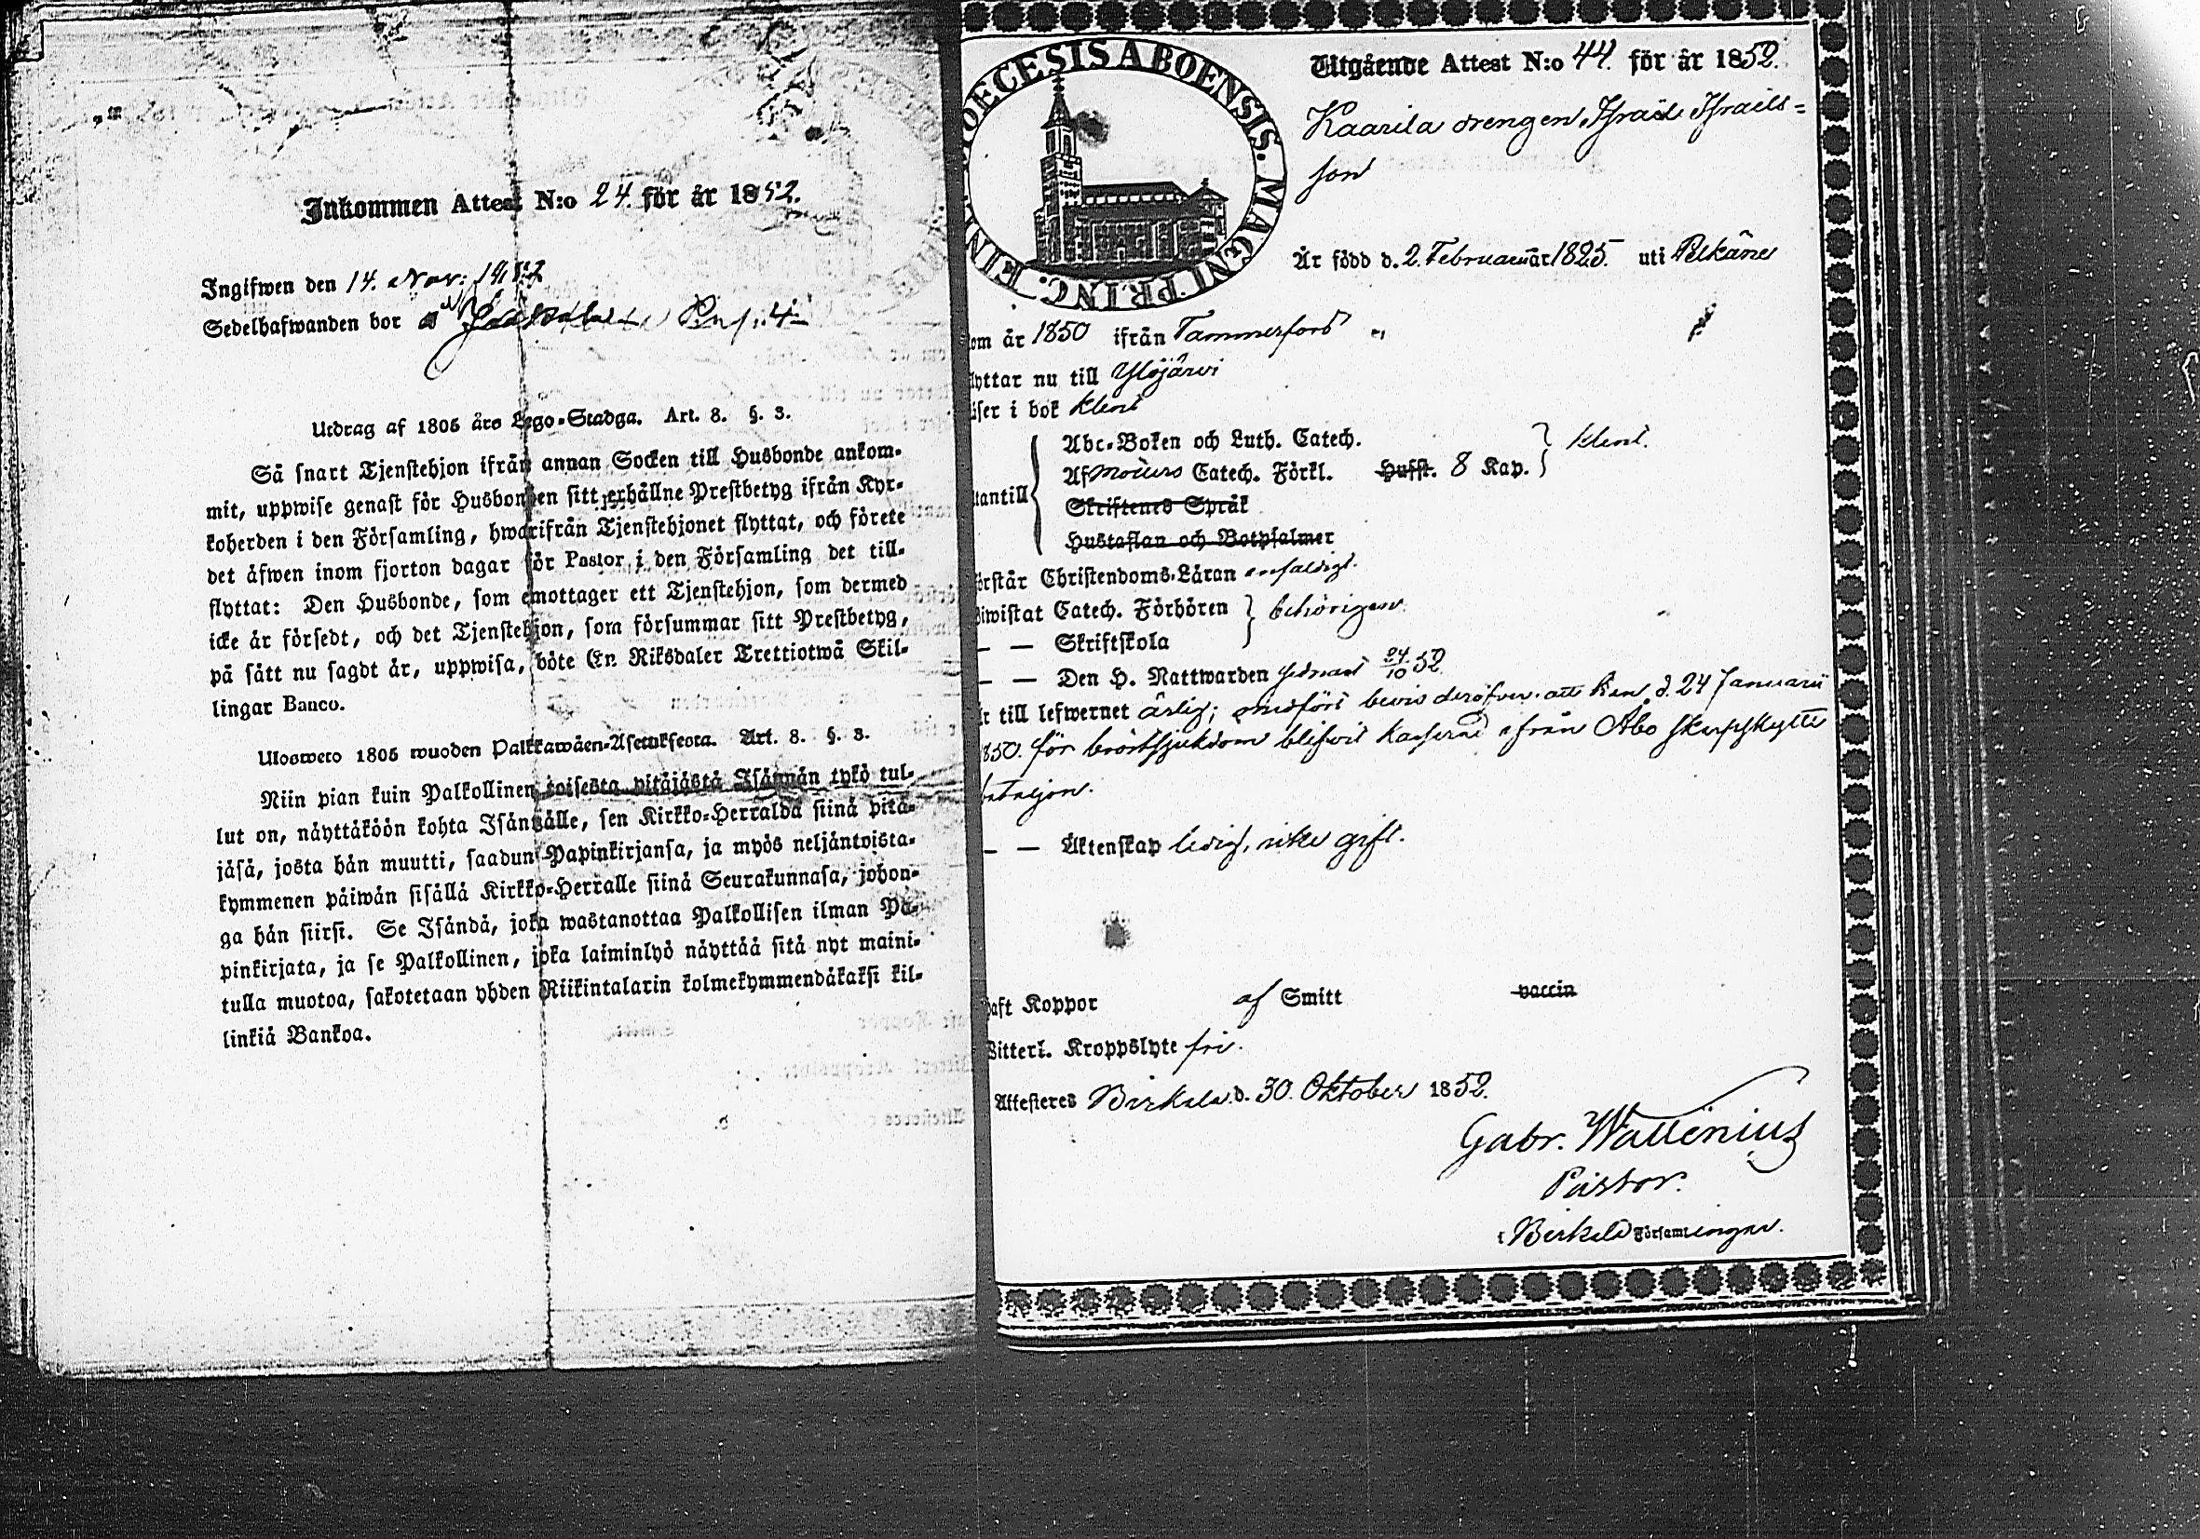 Inkommen Attest N:o 24. för år 1852.
Ingifwen den 14. Nov: 1852
Sedelhafwanden bor
Utdrag af 1805 års Lego-Stadga. Art. 8. §. 3.
Så snart Tjenstehjon ifrån annan Socken till Husbonde ankom-
mit, uppwise genast för Husbonden sitt erhållne Prestbetyg ifrån Kyr-
koherden i den Församling, hwarifrån Tjenstehjonet flyttat, och förete
det äfwen inom fjorton dagar för Pastor i den Församling det till-
flyttat: Den Husbonde, som emottager ett Tjenstehjon, som dermed
icke är försedt, och det Tjenstehjon, som försummar sitt Prestbetyg,
på sätt nu sagdt är, uppwisa, böte En Riksdaler Trettiotwå Skil-
lingar Banco.
Ulosweto 1805 wuoden Palkkawäen-Asetuksesta. Art. 8. §. 3.
Niin pian kuin Palkollinen toisesta pitäjästä Isännän tykö tul-
lut on, näyttäköön kohta Isännälle, sen Kirkko-Herralda siinä pitä-
jäsä, josta hän muutti, saadun Papinkirjansa, ja myös neljäntoista-
kymmenen päiwän sisällä Kirkko-Herralle siinä Seurakunnasa, johon-
ga hän siirsi. Se Isändä, joka wastanottaa Palkollisen ilman Pa-
pinkirjata, ja se Palkollinen, joka laiminlyö näyttää sitä nyt maini-
tulla muotoa, sakotetaan yhden Riikintalarin kolmekymmendäkaksi kil-
linkiä Bankoa.
DIOECESIS ABOENSIS. MAGNI PRINC. FIN
Utgående Attest N:o 44. för år 1852.
Kaarila drengen Israel Israels-
son
Är född d. 2. Februarii år 1825. uti Pelkäne
om år 1850 ifrån Tammerfors
lyttar nu till Ylöjärvi
äser i bok klent
tantill Abc-Boken och Luth. Catech.
Af Möllers Catech. Förkl. Hufst. 8 Kap. klent.
Skriftenes Språk
Hustaflan och Botpsalmer
örstår Christendoms-Läran enfaldigt.
iwistat Catech. Förhören behörigen.
— — Skriftskola
— — Den H. Nattwarden sednast 24/10 52
r till lefwernet ärlig; medfört bevis deröfver att han d. 24 Januarii
850. för bröstsjukdom blifvit kasserad ifrån Åbo skarpskytte
bataljon.
— — Äktenskap ledig, icke gift.
haft Koppor af Smitt vaccin
Witterl. Kroppslyte fri.
Attesteres Birkala d. 30. Oktober 1852.
Gabr. Wallenius
Pastor.
i Birkala Församlingen.